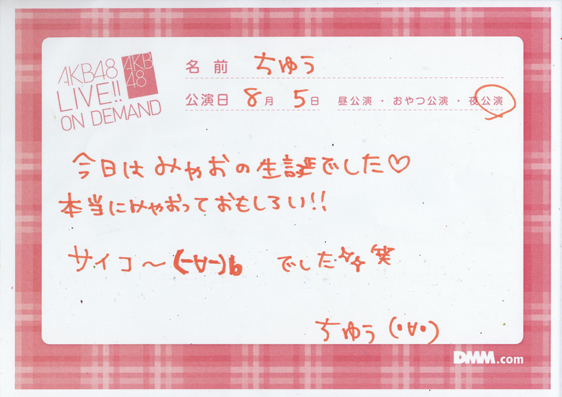 AKB48
LIVE!!
ON DEMAND
AKB
48
名前 ちゅう
公演日 8月 5日 昼公演・おやつ公演・夜公演
今日はみゃおの生誕でした♡
本当にみゃおっておもしろい!!
サイコ〜(-∀-)b でした☆☆笑
ちゅう(・∀・)
DMM.com